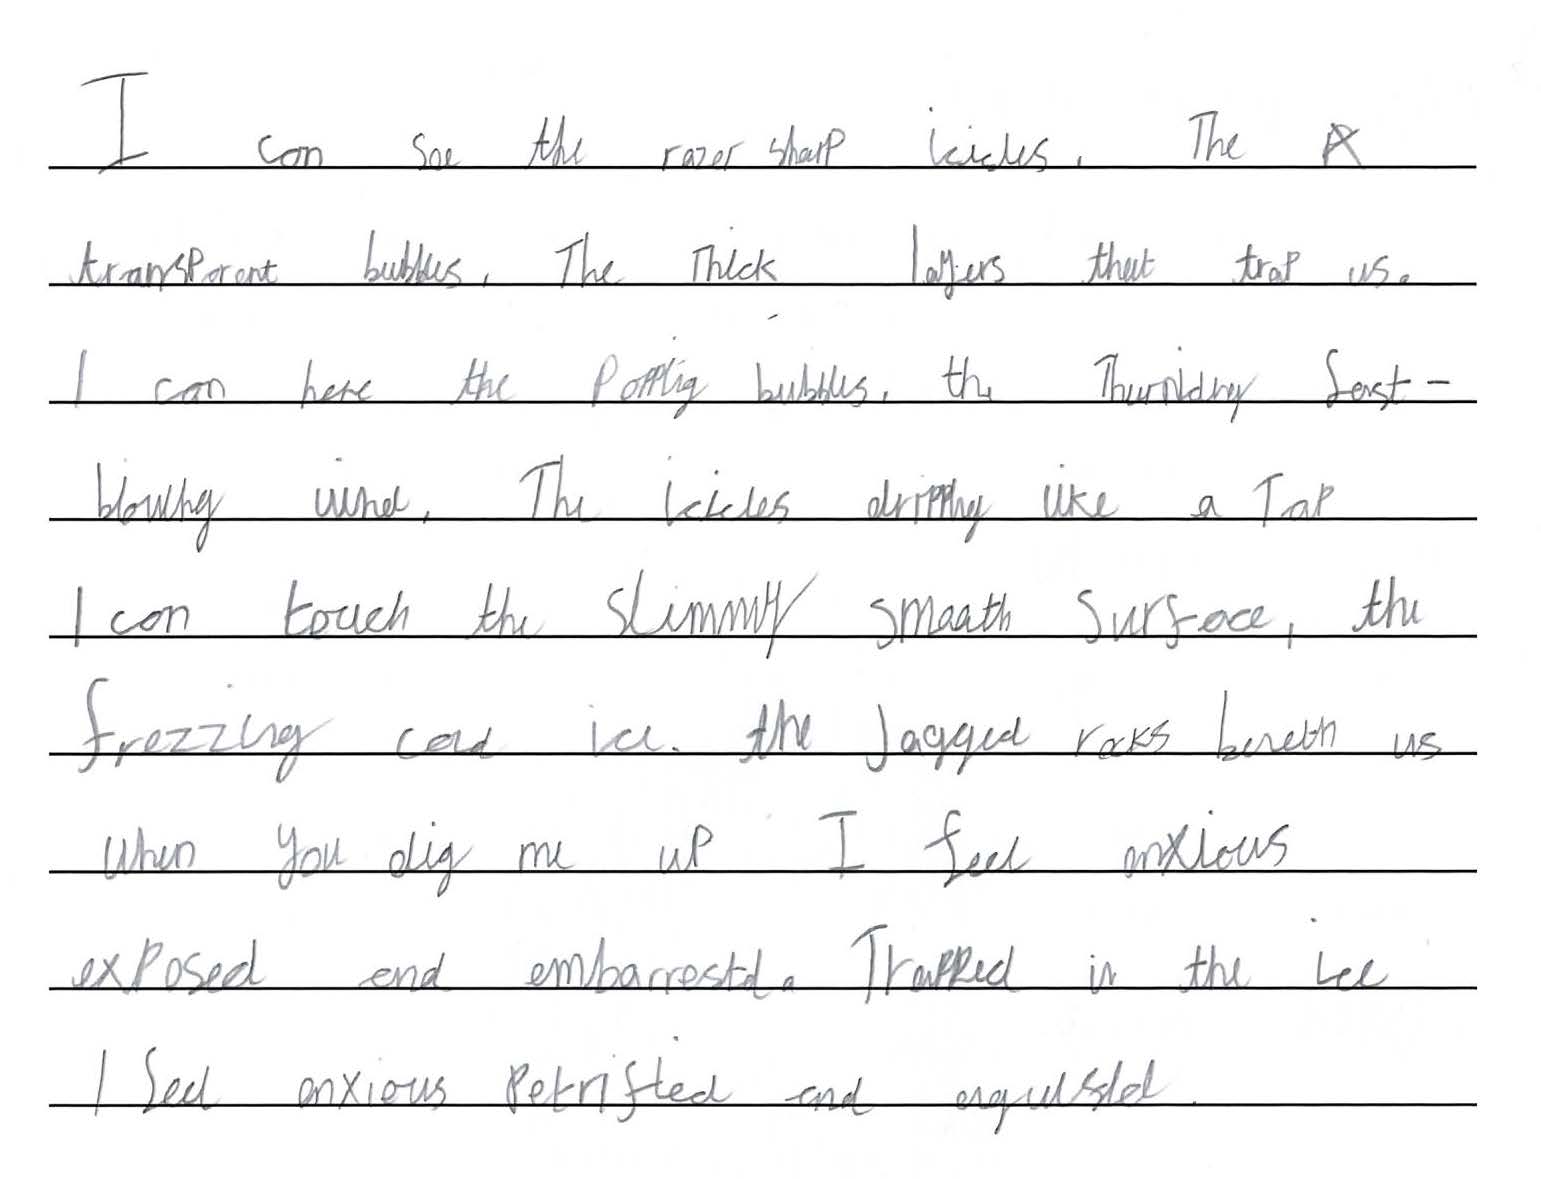 I can see the razer sharp icicles. The
transparent bubbles, The Thick layers that trap us.
I can here the Poppig bubbles, the fast-
blowing wind, The icicles dripping like a Tap
I can touch the slimmy smooth surface, the
frezzing cold ice. the Jagged rocks beneth us
when you dig me up I feel anxious
exposed and embarrestd. Trapped in the ice
I feel anxious Petrifted and